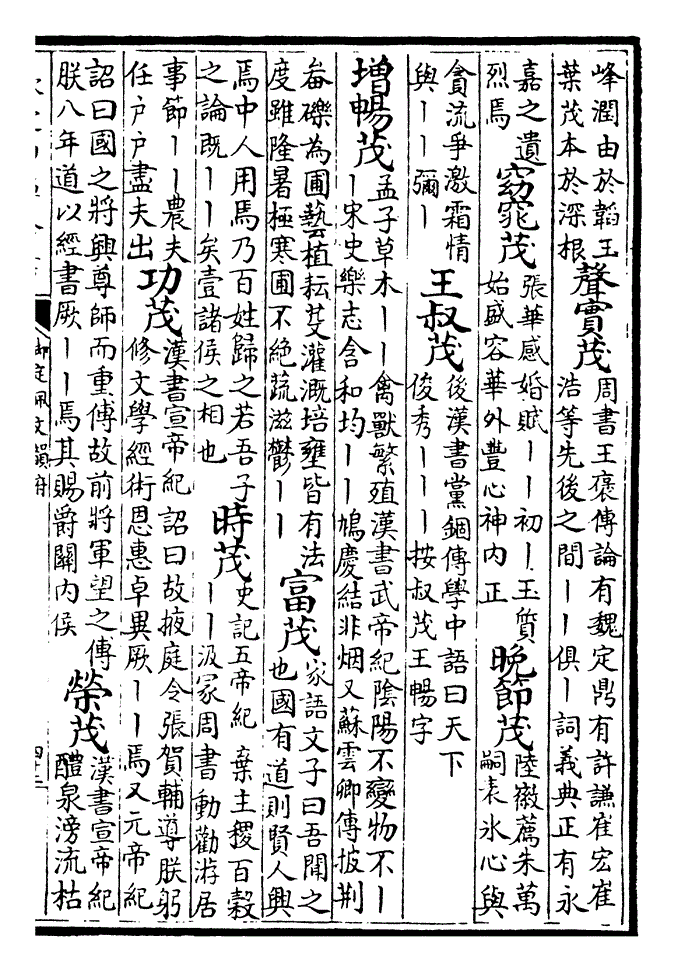 峰潤由於韜玉
葉茂本於深根
聲實茂
周書王褒傳論有魏定鼎有許謙崔宏崔
浩等先後之間丨丨俱丨詞義典正有永
嘉之遺
烈焉
窈窕茂
張華感婚賦丨丨初丨玉質
始盛容華外豐心神内正
晚節茂
陸徽薦朱萬
嗣表氷心與
貪流爭激霜情
與丨丨彌丨
王叔茂
後漢書黨錮傳學中語曰天下
俊秀丨丨丨按叔茂王暢字
增暢茂
孟子草木丨丨禽獸繁殖漢書武帝紀陰陽不變物不丨
丨宋史樂志含和均丨丨鳩慶結非烟又蘇雲卿傳披荆
畚礫為圃藝植耘芟灌溉培壅皆有法
度雖隆暑極寒圃不絶蔬滋鬱丨丨
富茂
家語文子曰吾聞之
也國有道則賢人興
焉中人用焉乃百姓歸之若吾子
之論既丨丨矣壹諸侯之相也
時茂
史記五帝紀 棄主稷百穀
丨丨汲冢周書動勸游居
事節丨丨農夫
任户户盡夫出
功茂
漢書宣帝紀詔曰故掖庭令張賀輔導朕躬
修文學經術恩惠卓異厥丨丨焉又元帝紀
詔曰國之將興尊師而重傅故前將軍望之傅
朕八年道以經書厥丨丨焉其賜爵關内侯
榮茂
漢書宣帝紀
醴泉滂流枯
御定佩文韻府